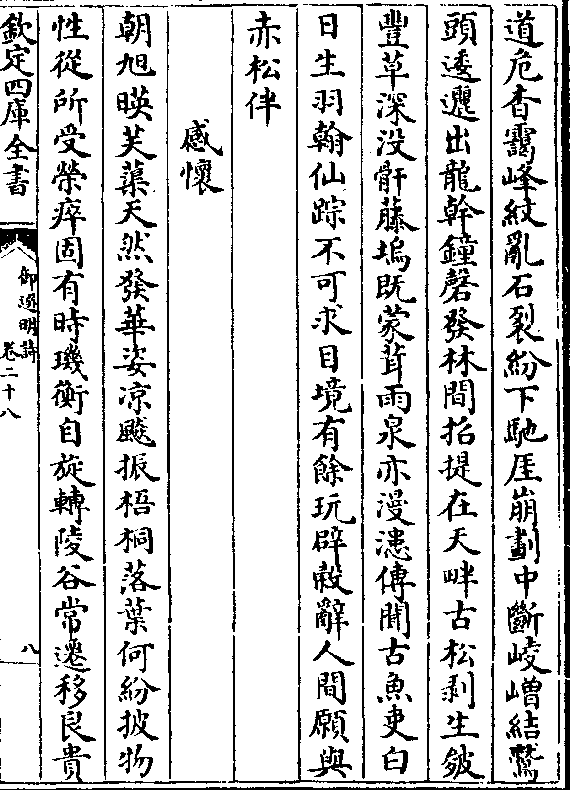 道危杳靄峰紋亂石裂紛下馳厓崩劃中斷崚嶒結鷲
頭逶邐出龍幹鐘磬發林間招提在天畔古松剥生皴
豐草深沒骭藤塢既蒙茸雨泉亦漫漶傳聞古魚吏白
日生羽翰仙踪不可求目境有餘玩辟穀辭人間願與
赤松伴
感懷
朝旭暎芙蕖天然發華姿凉飈振梧桐落葉何紛披物
性從所受榮瘁固有時璣衡自旋轉陵谷常遷移良貴
欽定四庫全書
御選明詩
卷二十八
八